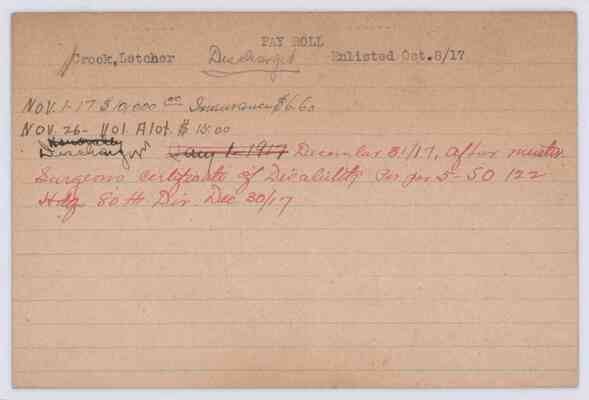 PAY ROLL
Crook, Letcher Discharged Enlisted Oct.8/17
Nov. 1-17 $10,000 00 Insurance $6.60
Nov. 26- Vol. Alot. $15.00
Honorably
Discharged Jany 1-1917 December 31/17, after muster
Surgeons Certificate of Disability 5-50 122
Hdq 80th Div Dec 30/17